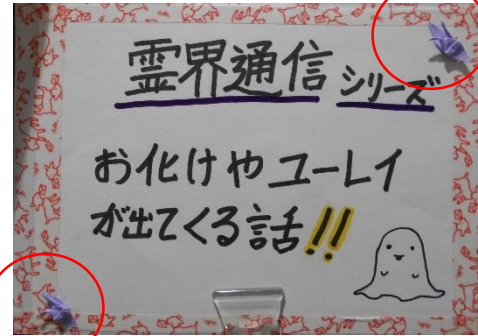 霊界通信シリーズ
お化けやユーレイ
が出てくる話!!